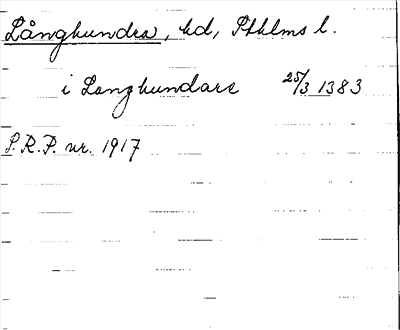 Långhundra, hd, Sthlms l.
i Langhundare 25/3 1383
S.R.P. nr. 1917